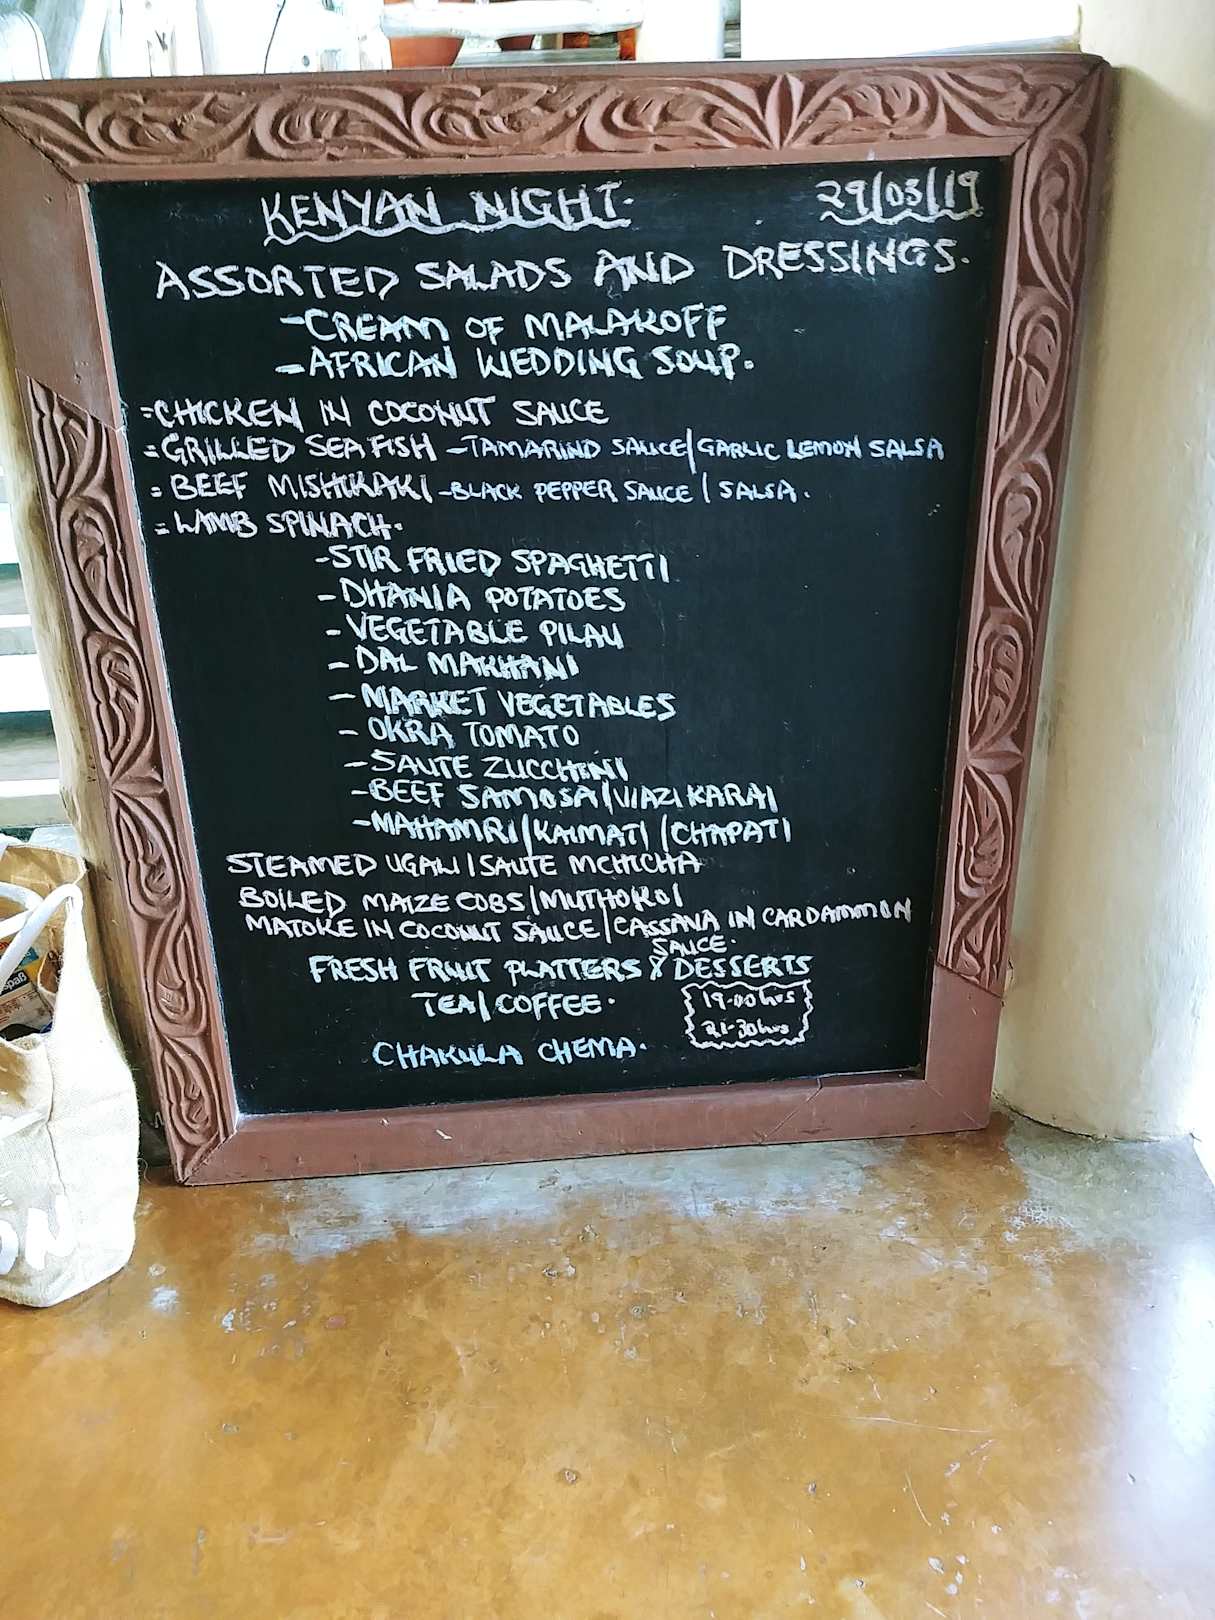 KENYAN NIGHT. 29/03/19
ASSORTED SALADS AND DRESSINGS.
-CREAM OF MALAKOFF
-AFRICAN WEDDING SOUP.
=CHICKEN IN COCONUT SAUCE
=GRILLED SEA FISH -TAMARIND SAUCE/GARLIC LEMON SALSA
=BEEF MISHIKAKI -BLACK PEPPER SAUCE / SALSA.
=LAMB SPINACH.
-STIR FRIED SPAGHETTI
-DHANIA POTATOES
-VEGETABLE PILAU
-DAL MAKHANI
-MARKET VEGETABLES
-OKRA TOMATO
-SAUTE ZUCCHINI
-BEEF SAMOSA/VIAZI KARAI
-MAHAMRI/KAIMATI/CHAPATI
STEAMED UGALI/SAUTE MCHICHA
BOILED MAIZE COBS/MUTHOKOI
MATOKE IN COCONUT SAUCE/CASSAVA IN CARDAMMON
SAUCE.
FRESH FRUIT PLATTERS & DESSERTS
TEA/COFFEE.
19-00hrs
21-30hrs
CHAKULA CHEMA.